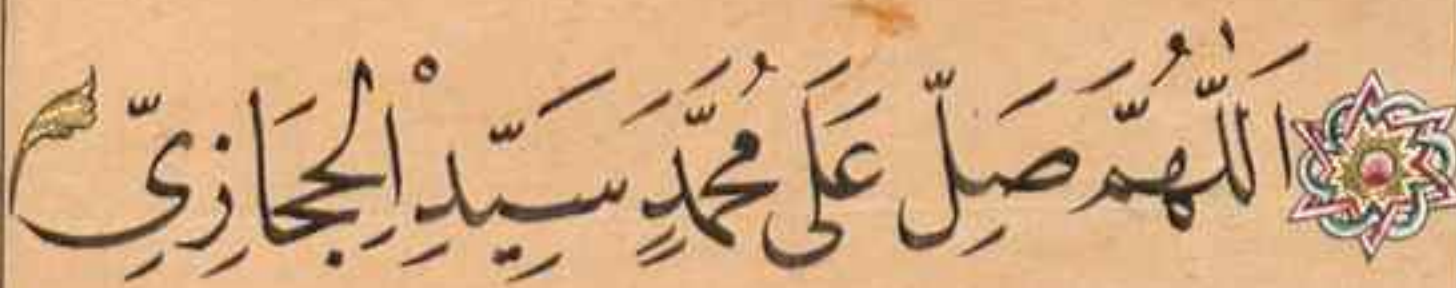 اَللّٰهُمَّ صَلِّ عَلَى مُحَمَّدٍ سَيِّدِ الْحِجَازِيِّ